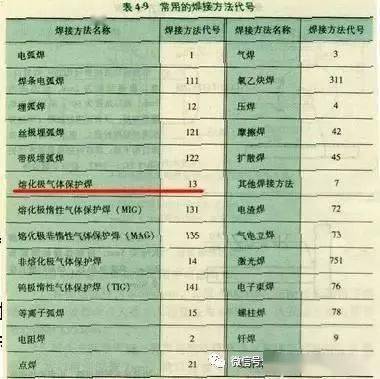 表4-9 常用的焊接方法代号
焊接方法名称 焊接方法代号 焊接方法名称 焊接方法代号
电弧焊 1 气焊 3
焊条电弧焊 111 氧乙炔焊 311
埋弧焊 12 压焊 4
丝极埋弧焊 121 摩擦焊 42
带极埋弧焊 122 扩散焊 45
熔化极气体保护焊 13 其他焊接方法 7
熔化极惰性气体保护焊(MIG) 131 电渣焊 72
熔化极非惰性气体保护焊(MAG) 135 气电立焊 73
非熔化极气体保护焊 14 激光焊 751
钨极惰性气体保护焊(TIG) 141 电子束焊 76
等离子弧焊 15 螺柱焊 78
电阻焊 2 钎焊 9
点焊 21 微信号: